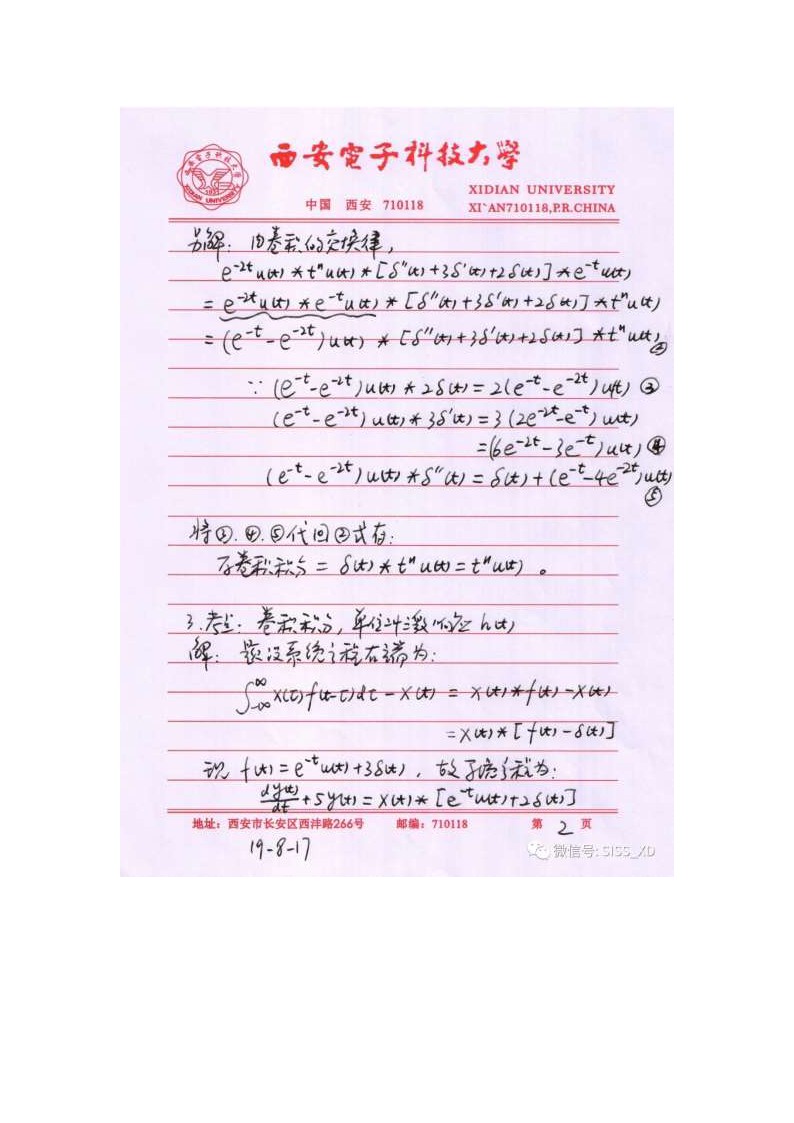 西安電子科技大學
中国 西安 710118
XIDIAN UNIVERSITY
XI`AN710118,P.R.CHINA
另解: 由卷积的交换律,
e^{-2t}u(t) * t^n u(t) * [δ''(t)+3δ'(t)+2δ(t)] * e^{-t}u(t)
= e^{-2t}u(t) * e^{-t}u(t) * [δ''(t)+3δ'(t)+2δ(t)] * t^n u(t)
= (e^{-t}-e^{-2t})u(t) * [δ''(t)+3δ'(t)+2δ(t)] * t^n u(t) ②
∵ (e^{-t}-e^{-2t})u(t) * 2δ(t) = 2(e^{-t}-e^{-2t})u(t) ③
(e^{-t}-e^{-2t})u(t) * 3δ'(t) = 3(2e^{-2t}-e^{-t})u(t)
=(6e^{-2t}-3e^{-t})u(t) ④
(e^{-t}-e^{-2t})u(t) * δ''(t) = δ(t)+(e^{-t}-4e^{-2t})u(t)
⑤
将③.④.⑤代回②式有:
卷积积分 = δ(t) * t^n u(t) = t^n u(t) 。
3.考点: 卷积积分, 单位冲激响应 h(t)
解: 设系统方程右端为:
∫_{-∞}^{∞} x(τ)f(t-τ)dτ - x(t) = x(t)*f(t)-x(t)
= x(t) * [f(t)-δ(t)]
现 f(t) = e^{-t}u(t)+3δ(t), 故方程为:
dy(t)/dt + 5y(t) = x(t) * [e^{-t}u(t)+2δ(t)]
地址: 西安市长安区西沣路266号 邮编: 710118 第 2 页
19-8-17
微信号: SISS_XD